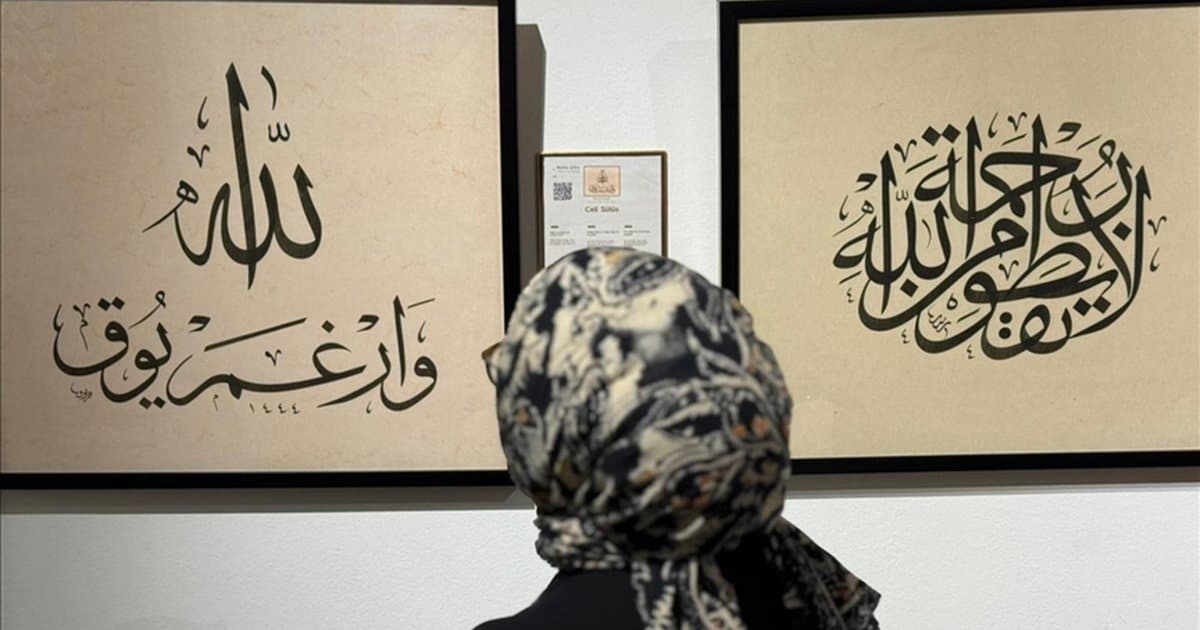 الله
وار غم يوق
١٤٤٤
Celî Sülüs
لا تقنطوا من رحمة الله